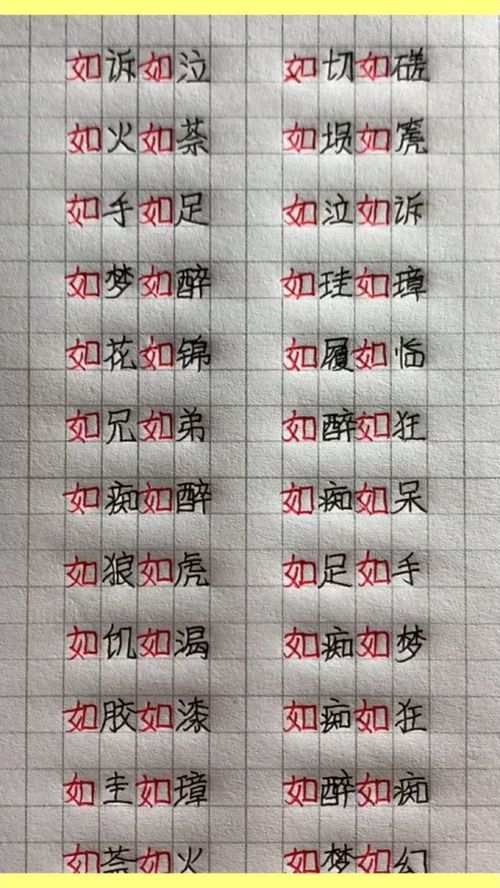 如诉如泣 如切如磋
如火如荼 如埙如
如手如足 如泣如诉
如梦如醉 如珪如璋
如花如锦 如履如临
如兄如弟 如醉如狂
如痴如醉 如痴如呆
如狼如虎 如足如手
如饥如渴 如痴如梦
如胶如漆 如痴如狂
如圭如璋 如醉如痴
如荼如火 如梦如幻